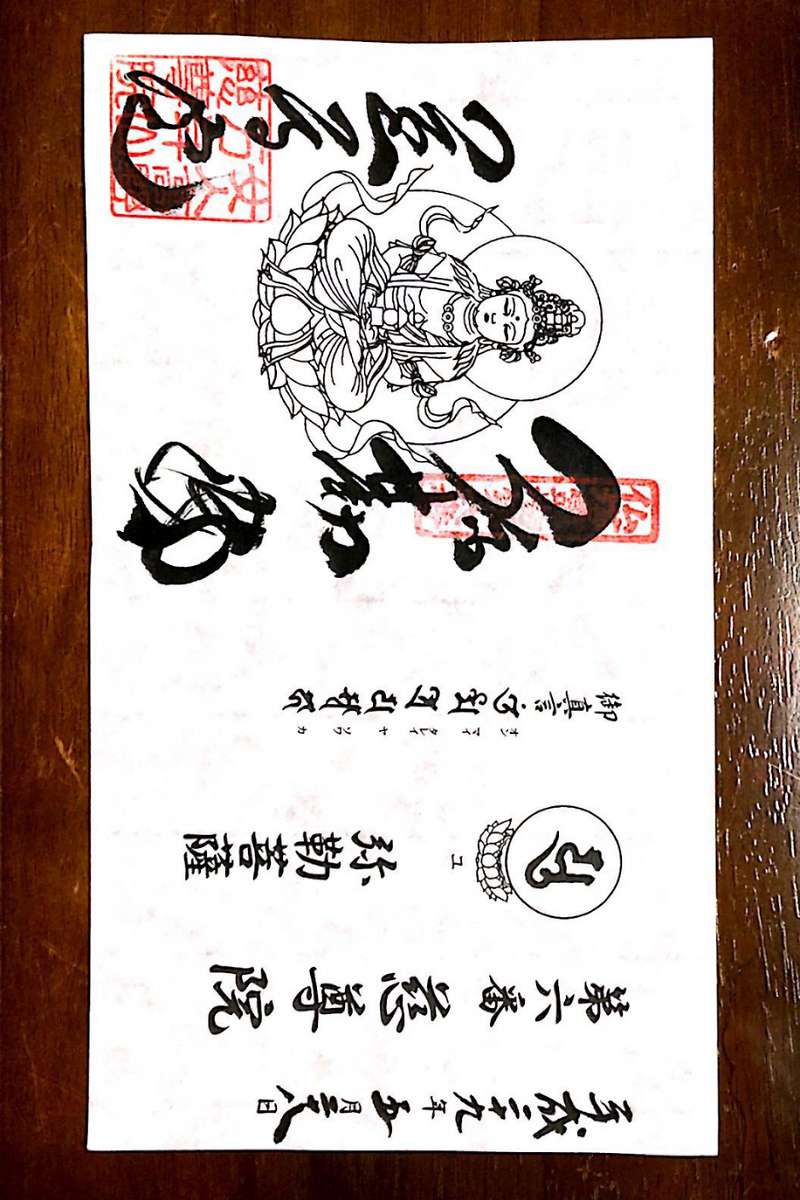 平成二十九年五月二十八日
第六番 慈尊院
ユ
弥勒菩薩
御真言
オン マイ タレイ ヤ ソワ カ
弥勒
慈尊院